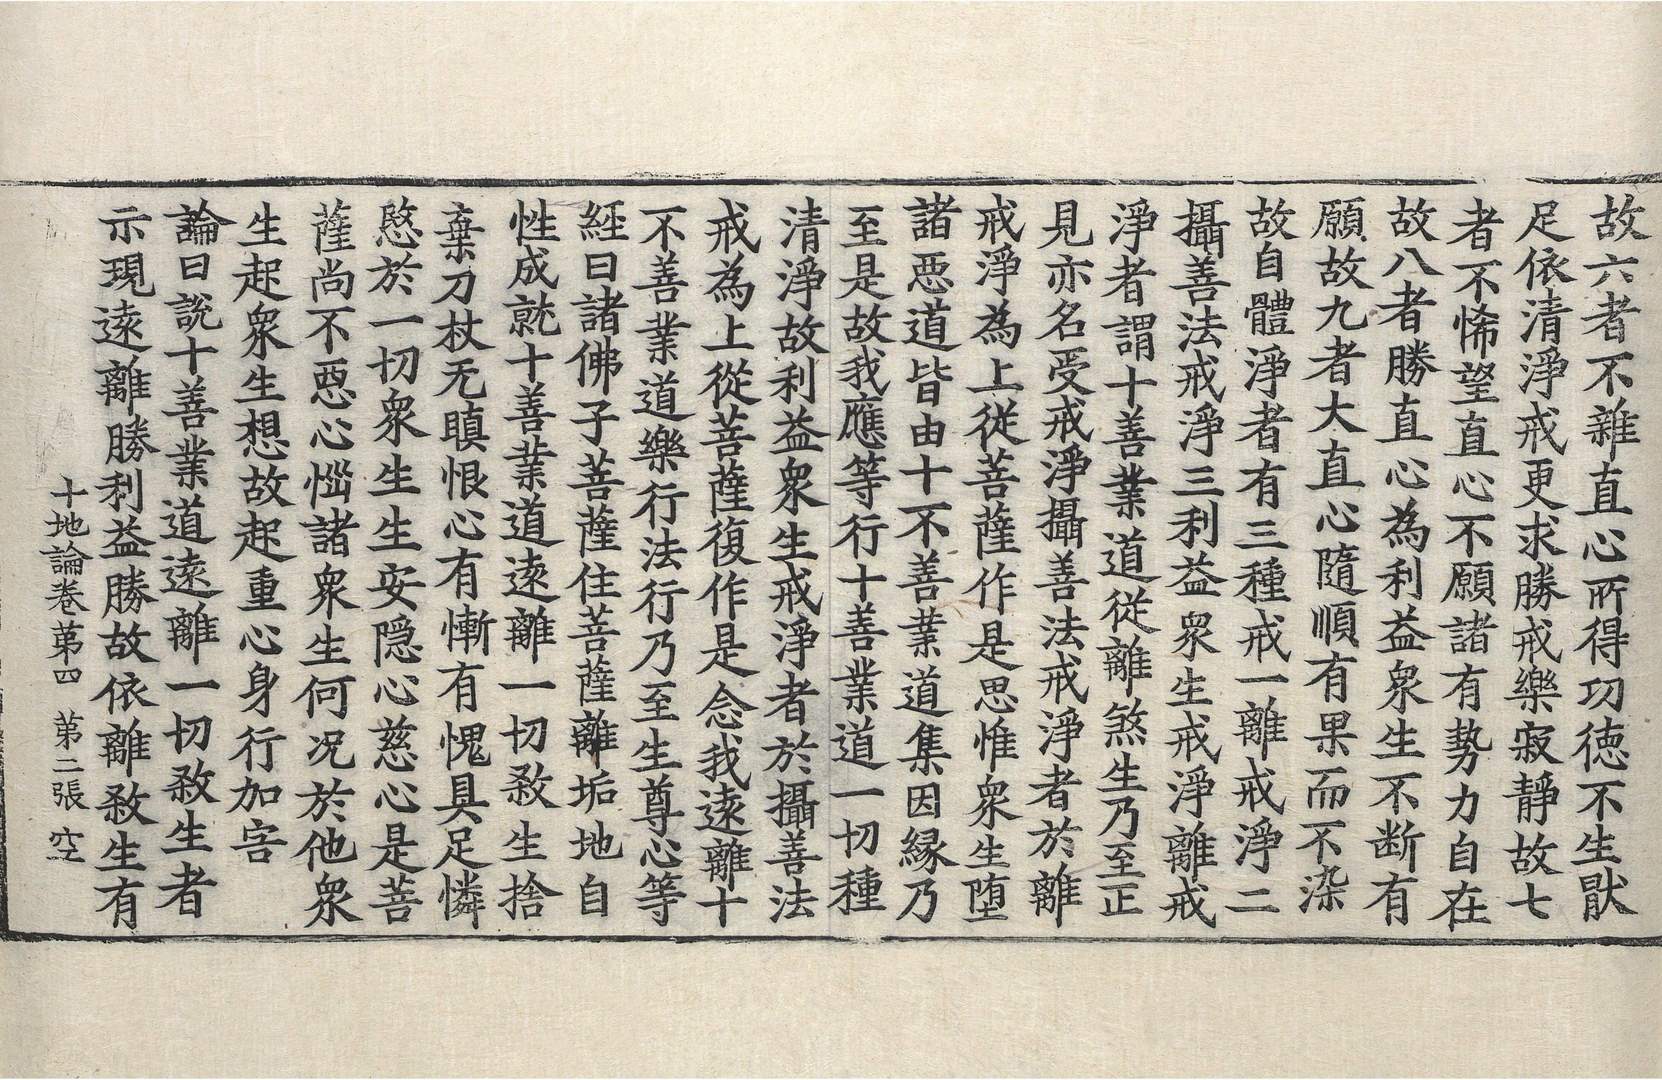 故六者不雜直心所得功徳不生猒
足依清淨戒更求勝戒樂寂靜故七
者不悕望直心不願諸有勢力自在
故八者勝直心為利益衆生不断有
願故九者大直心隨順有果而不染
故自體淨者有三種戒一離戒淨二
攝善法戒淨三利益衆生戒淨離戒
淨者謂十善業道從離煞生乃至正
見亦名受戒淨攝善法戒淨者於離
戒淨為上從菩薩作是思惟衆生堕
諸惡道皆由十不善業道集因縁乃
至是故我應等行十善業道一切種
清淨故利益衆生戒淨者於攝善法
戒為上從菩薩復作是念我遠離十
不善業道樂行法行乃至生尊心等
經曰諸佛子菩薩住菩薩離垢地自
性成就十善業道遠離一切煞生捨
棄刀杖无瞋恨心有慚有愧具足憐
愍於一切衆生生安隠心慈心是菩
薩尚不惡心惱諸衆生何況於他衆
生起衆生想故起重心身行加害
論曰説十善業道遠離一切煞生者
示現遠離勝利益勝故依離煞生有
十地論卷苐四 苐二張 空